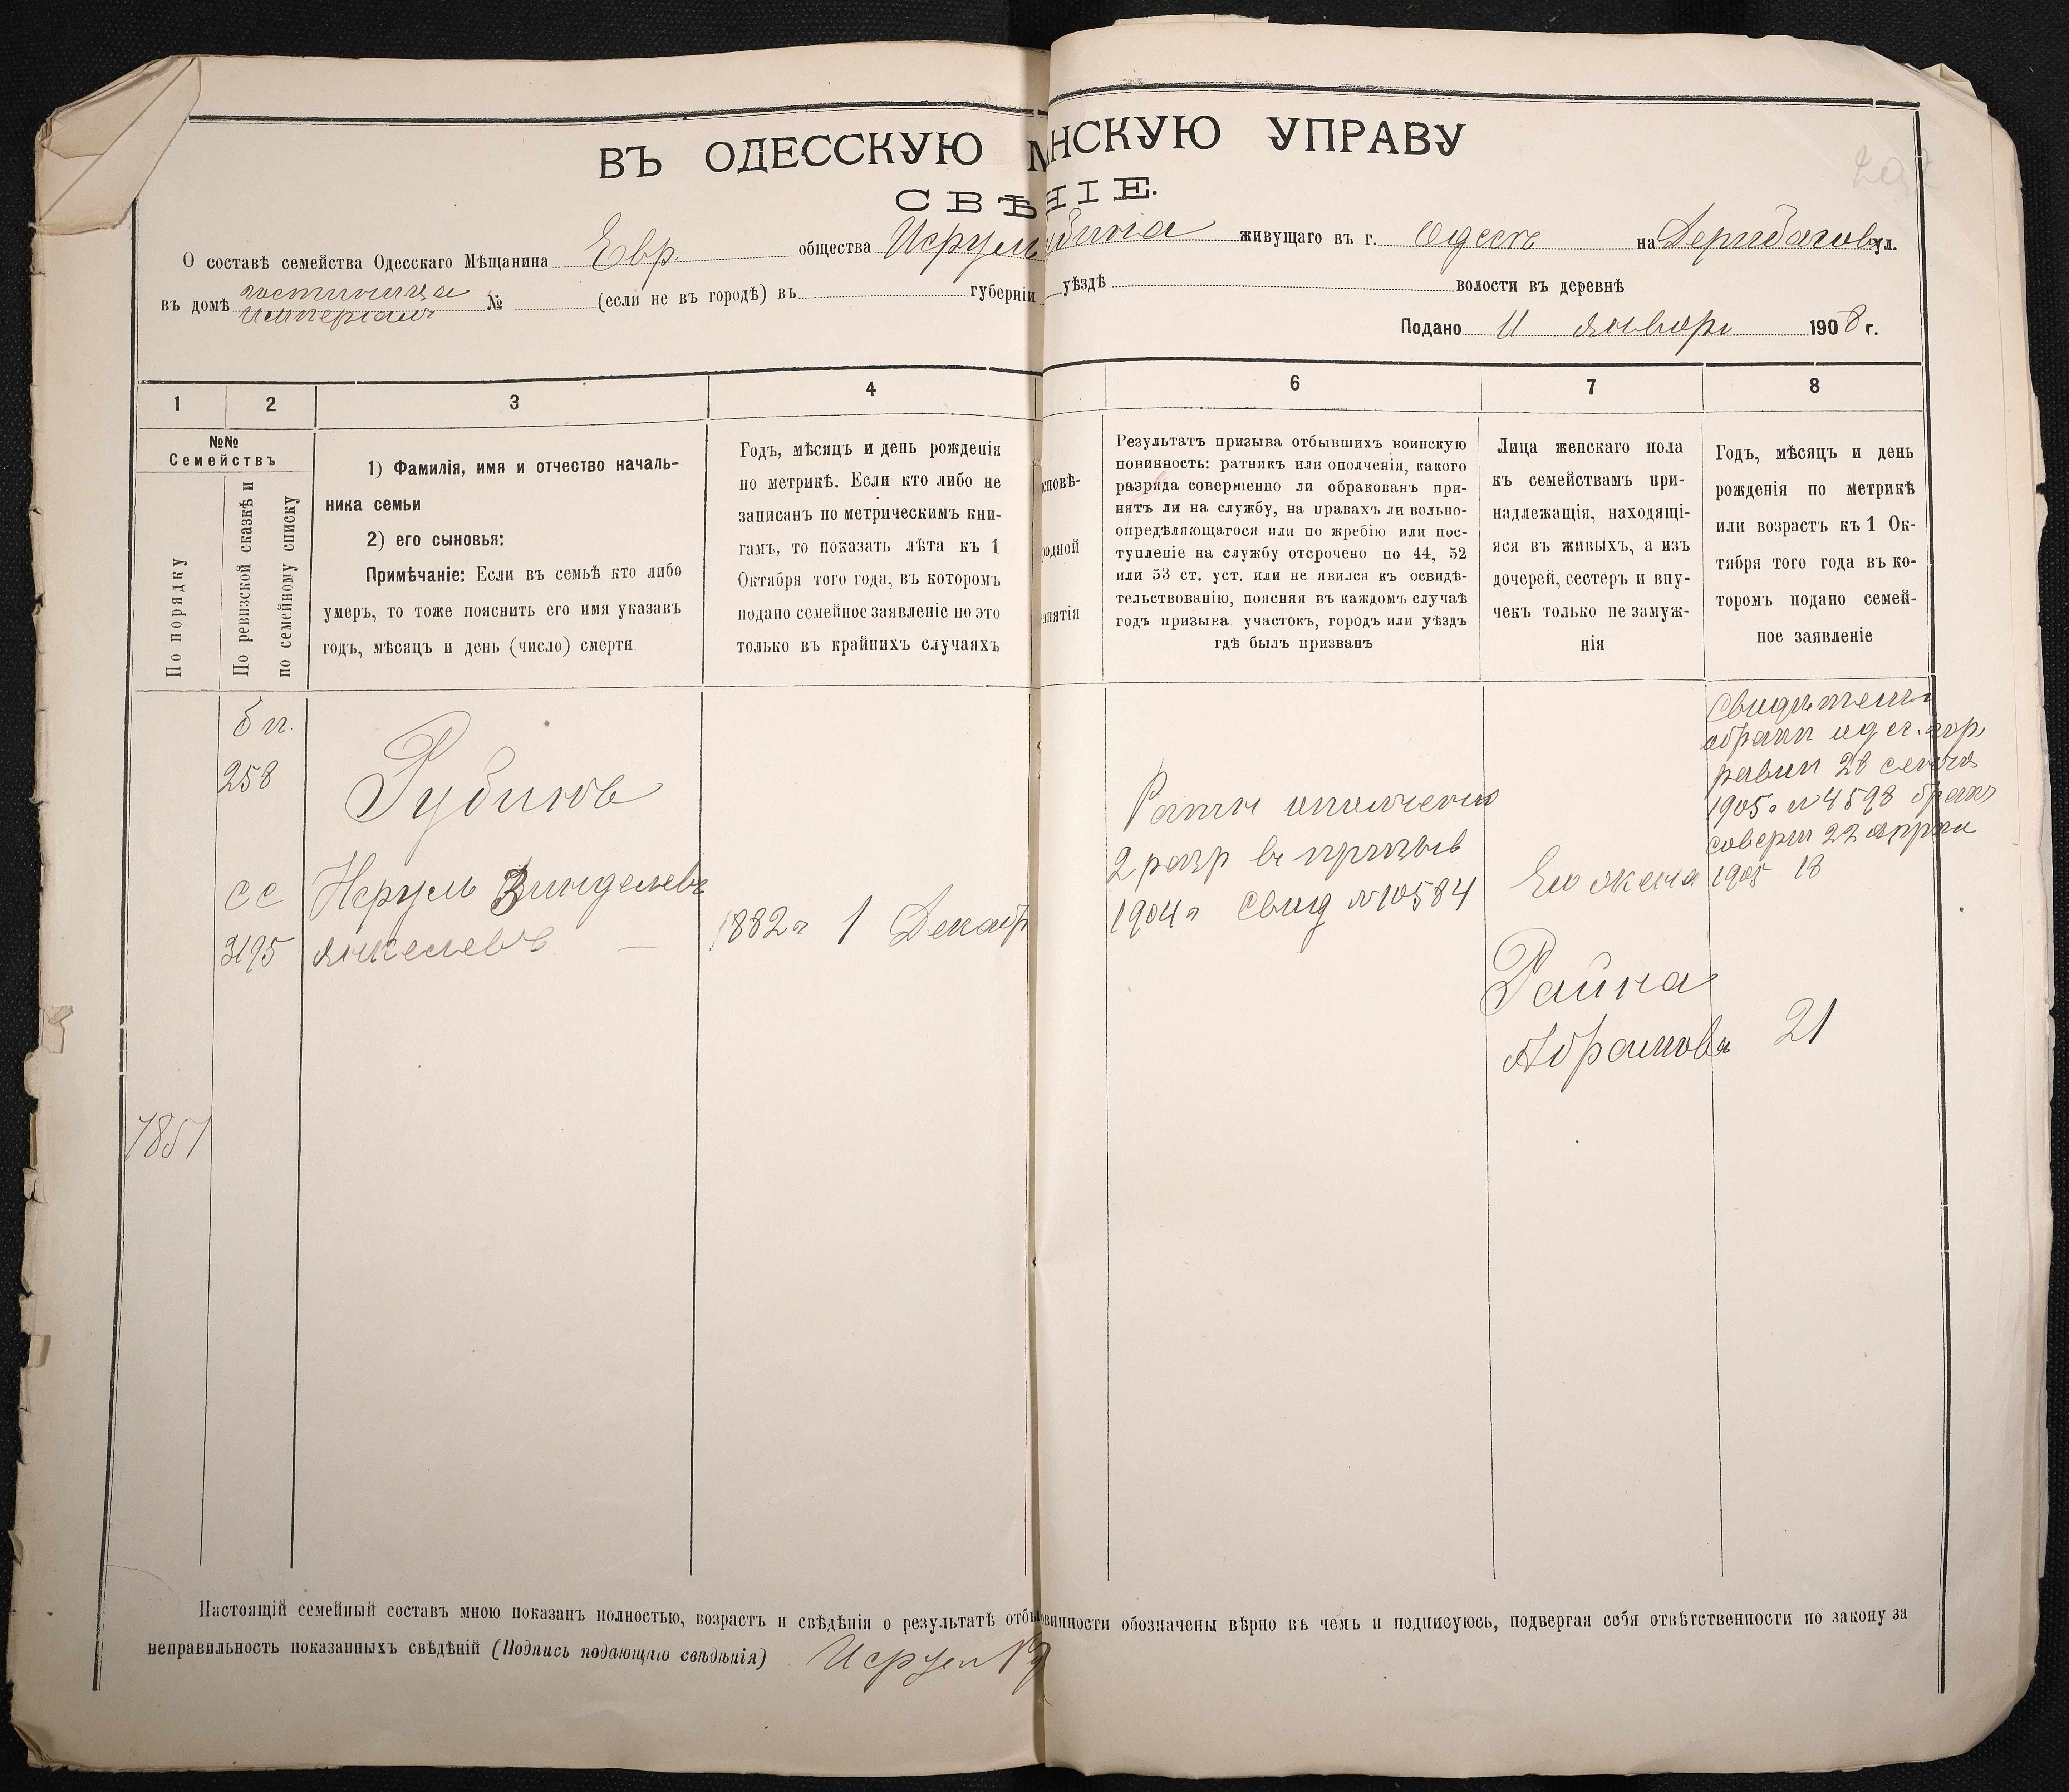 ВЪ ОДЕССКУЮ М НСКУЮ УПРАВУ
СВѢ НІЕ.
О составѣ семейства Одесскаго Мѣщанина Евр. общества Исруля убина живущаго въ г. Одессѣ на Дерибасов ул.
въ домѣ гостиница Империалъ № (если не въ городѣ) въ губерніи уѣздѣ волости въ деревнѣ
Подано 11 Января 1908 г.
1 2 3 4 6 7 8
№№
Семействъ
По порядку
По ревизской сказкѣ и
по семейному списку
1) Фамилія, имя и отчество началь-
ника семьи
2) его сыновья:
Примѣчаніе: Если въ семьѣ кто либо
умеръ, то тоже пояснить его имя указавъ
годъ, мѣсяцъ и день (число) смерти
Годъ, мѣсяцъ и день рожденія
по метрикѣ. Если кто либо не
записанъ по метрическимъ кни-
гамъ, то показать лѣта къ 1
Октября того года, въ которомъ
подано семейное заявленіе но это
только въ крайнихъ случаяхъ
сповѣ-
родной
анятія
Результатъ призыва отбывшихъ воинскую
повинность: ратникъ или ополченія, какого
разряда совершенно ли обракованъ при-
нятъ ли на службу, на правахъ ли вольно-
опредѣляющагося или по жребію или пос-
тупленіе на службу отсрочено по 44, 52
или 53 ст. уст. или не явился къ освидѣ-
тельствованію, поясняя въ каждомъ случаѣ
годъ призыва. участокъ, городъ или уѣздъ
гдѣ былъ призванъ
Лица женскаго пола
къ семействамъ при-
надлежащія, находящі-
яся въ живыхъ, а изъ
дочерей, сестеръ и вну-
чекъ только не замуж-
нія
Годъ, мѣсяцъ и день
рожденія по метрикѣ
или возрастъ къ 1 Ок-
тября того года въ ко-
торомъ подано семей-
ное заявленіе
б п.
258
сс
3195
7851
Рубинъ
Исруль Зинделевъ
Янкелевъ —
1882 г 1 Декабр
Ратн ополчения
2 разр въ призыв
1904 г Свид №10584
Его жена
Райна
Абрамова
Свидѣтел
о брак одес. гор.
равин 28 сентя
1905 г №4598 бракъ
соверш 22 апрѣля
1905 18
21
Настоящій семейный составъ мною показанъ полностью, возрастъ и свѣдѣнія о результатѣ отбы овинности обозначены вѣрно въ чемъ и подписуюсь, подвергая себя отвѣтственности по закону за
неправильность показанныхъ свѣдѣній (Подпись подающаго свѣдѣнія) Исрул